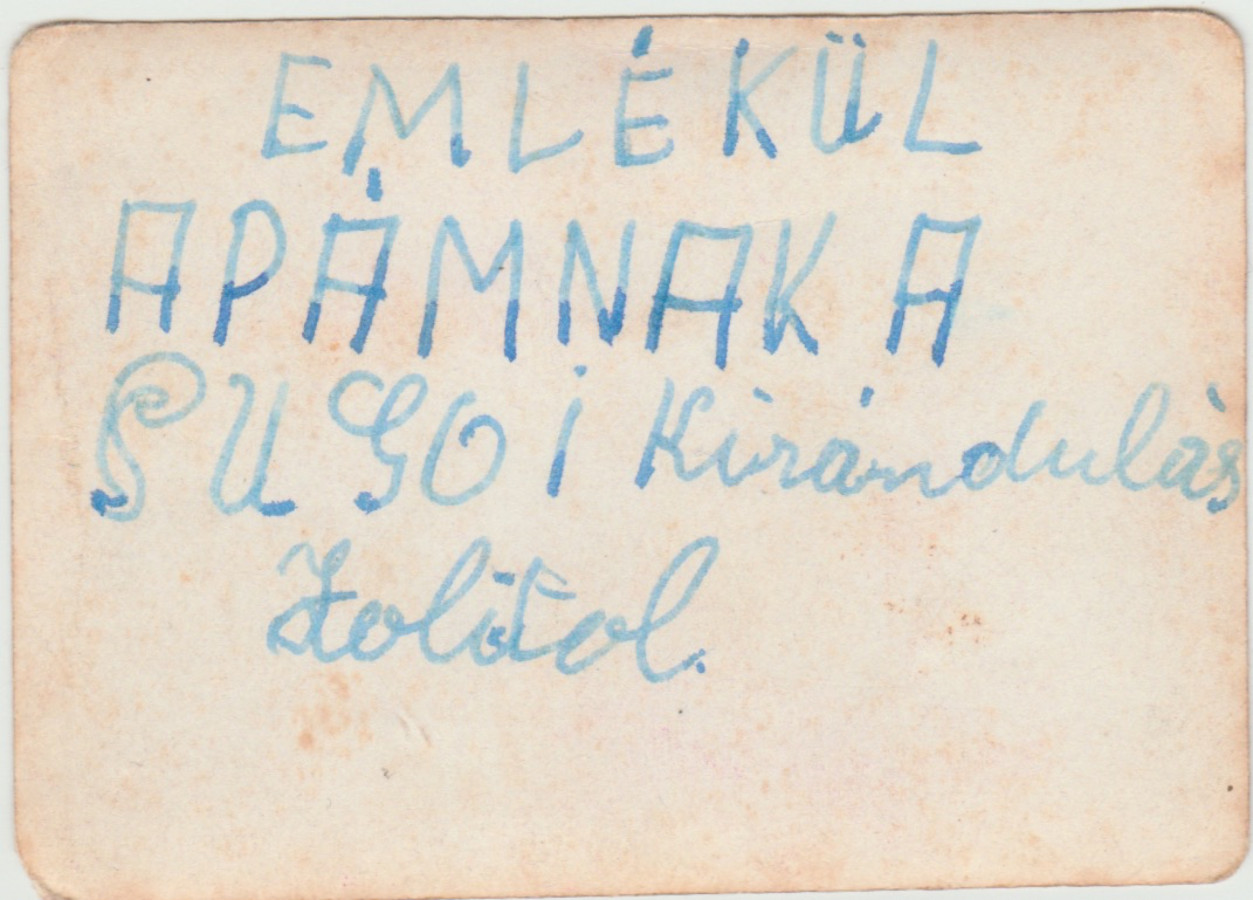 EMLÉKÜL
APÁMNAK A
SUGOI Kirándulás
Zolitol.